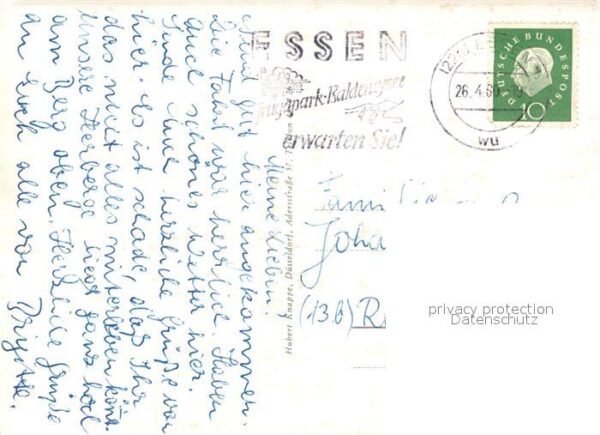 Meine Lieben!
Sind gut hier angekommen.
Die Fahrt war herrlich. Haben
auch schönes Wetter hier.
Sende Euch herzliche Grüße von
hier. Es ist schade, daß Ihr
das nicht alles miterleben könnt.
Unsere Herberge liegt ganz hoch
am Berg oben. Herzliche Grüße
an Euch alle von
Brigitte.
Hubert Knappe, Düsseldorf, Adersstraße 57,
ESSEN
Grugapark-Baldeneysee
erwarten Sie!
26.4.60
wu
DEUTSCHE BUNDESPOST
10
Fami
Joha
(13b) R
privacy protection
Datenschutz